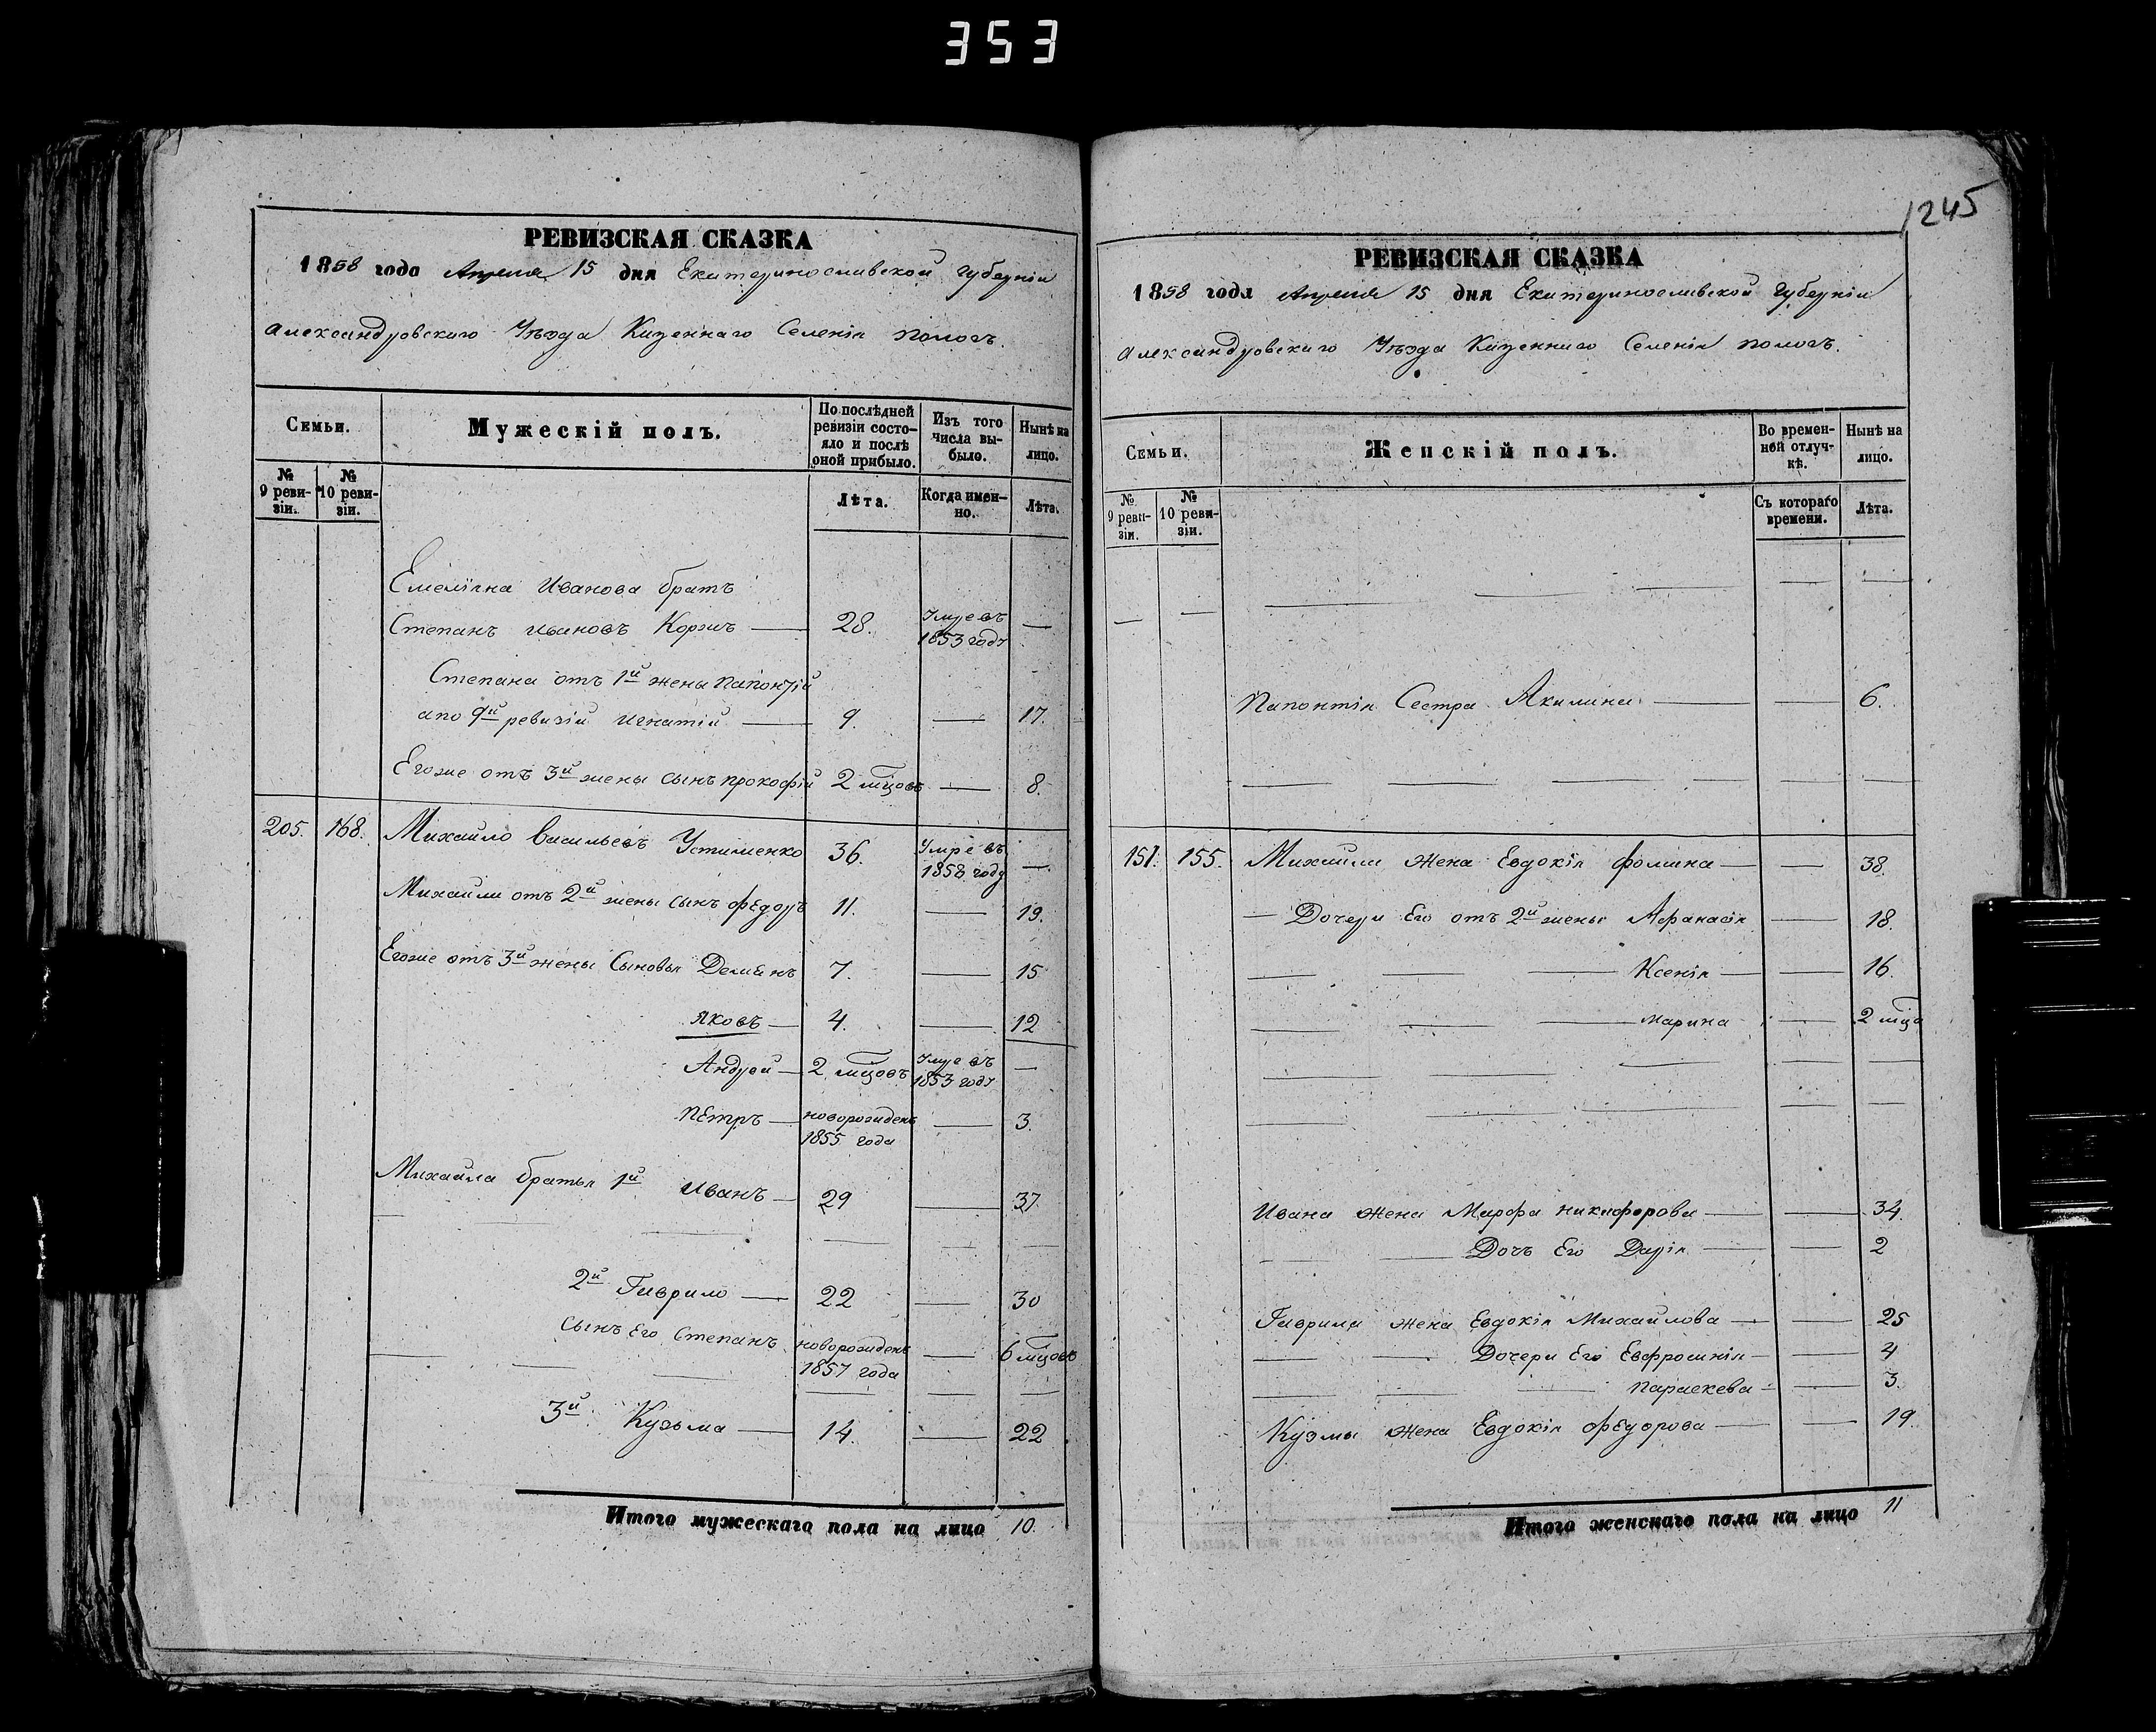 353
РЕВИЗСКАЯ СКАЗКА
1858 года Апреля 15 дня Екатеринославской Губерніи
Александровского Уѣзда Казеннаго Селенія пологъ.
Семьи.
Мужескій полъ.
По послѣдней ревизіи состояло и послѣ оной прибыло.
Изъ того числа выбыло.
Нынѣ на лицо.
№ 9 ревизіи.
№ 10 ревизіи.
Лѣта.
Когда именно.
Лѣта.
Емеліяна Иванова братъ
Степанъ ивановъ Коржъ 28. Умре въ 1853 году
Степана отъ 1й жены
апо 9й ревизіи игнатій 9. 17.
Егоже отъ 3й жены сынъ прокофій 2 мѣцовъ 8.
205. 168. Михайло васильевъ Устименко 36. Умре въ 1858 году
Михайли отъ 2й жены сынъ фЕдоръ 11. 19.
Егоже отъ 3й жены Сыновья Демянъ 7. 15
яковъ 4. 12
Андрей 2 мѣцовъ Умре въ 1853 году
пЕтръ новорожденъ 1855 года 3.
Михайла братья 1й иванъ 29 37.
2й Гаврило 22 30
сынъ Его Степанъ новорожденъ 1857 года 6 мѣцовъ
3й Кузьма 14. 22
Итого мужескаго пола на лицо 10.
1245
РЕВИЗСКАЯ СКАЗКА
1858 года Апреля 15 дня Екатеринославской Губерніи
Александровскаго Уѣзда Казеннаго Селенія пологъ.
Семьи.
Женскій полъ.
Во временной отлучкѣ.
Нынѣ на лицо.
№ 9 ревизіи.
№ 10 ревизіи.
Съ котораго времени.
Лѣта.
Сестра Акилина 6.
151. 155. Михайли жена Евдокія фомина 38.
Дочери Его отъ 2й жены Афанасія 18.
Ксенія 16.
марина 2 мѣца
Ивана жена Марфа никифорова 34.
Дочъ Его Дарія 2
Гаврила жена Евдокія Михайлова 25
Дочери Его Евфросинія 4
параскева 3.
Кузмы жена Евдокія фЕдорова 19.
Итого женскаго пола на лицо 11